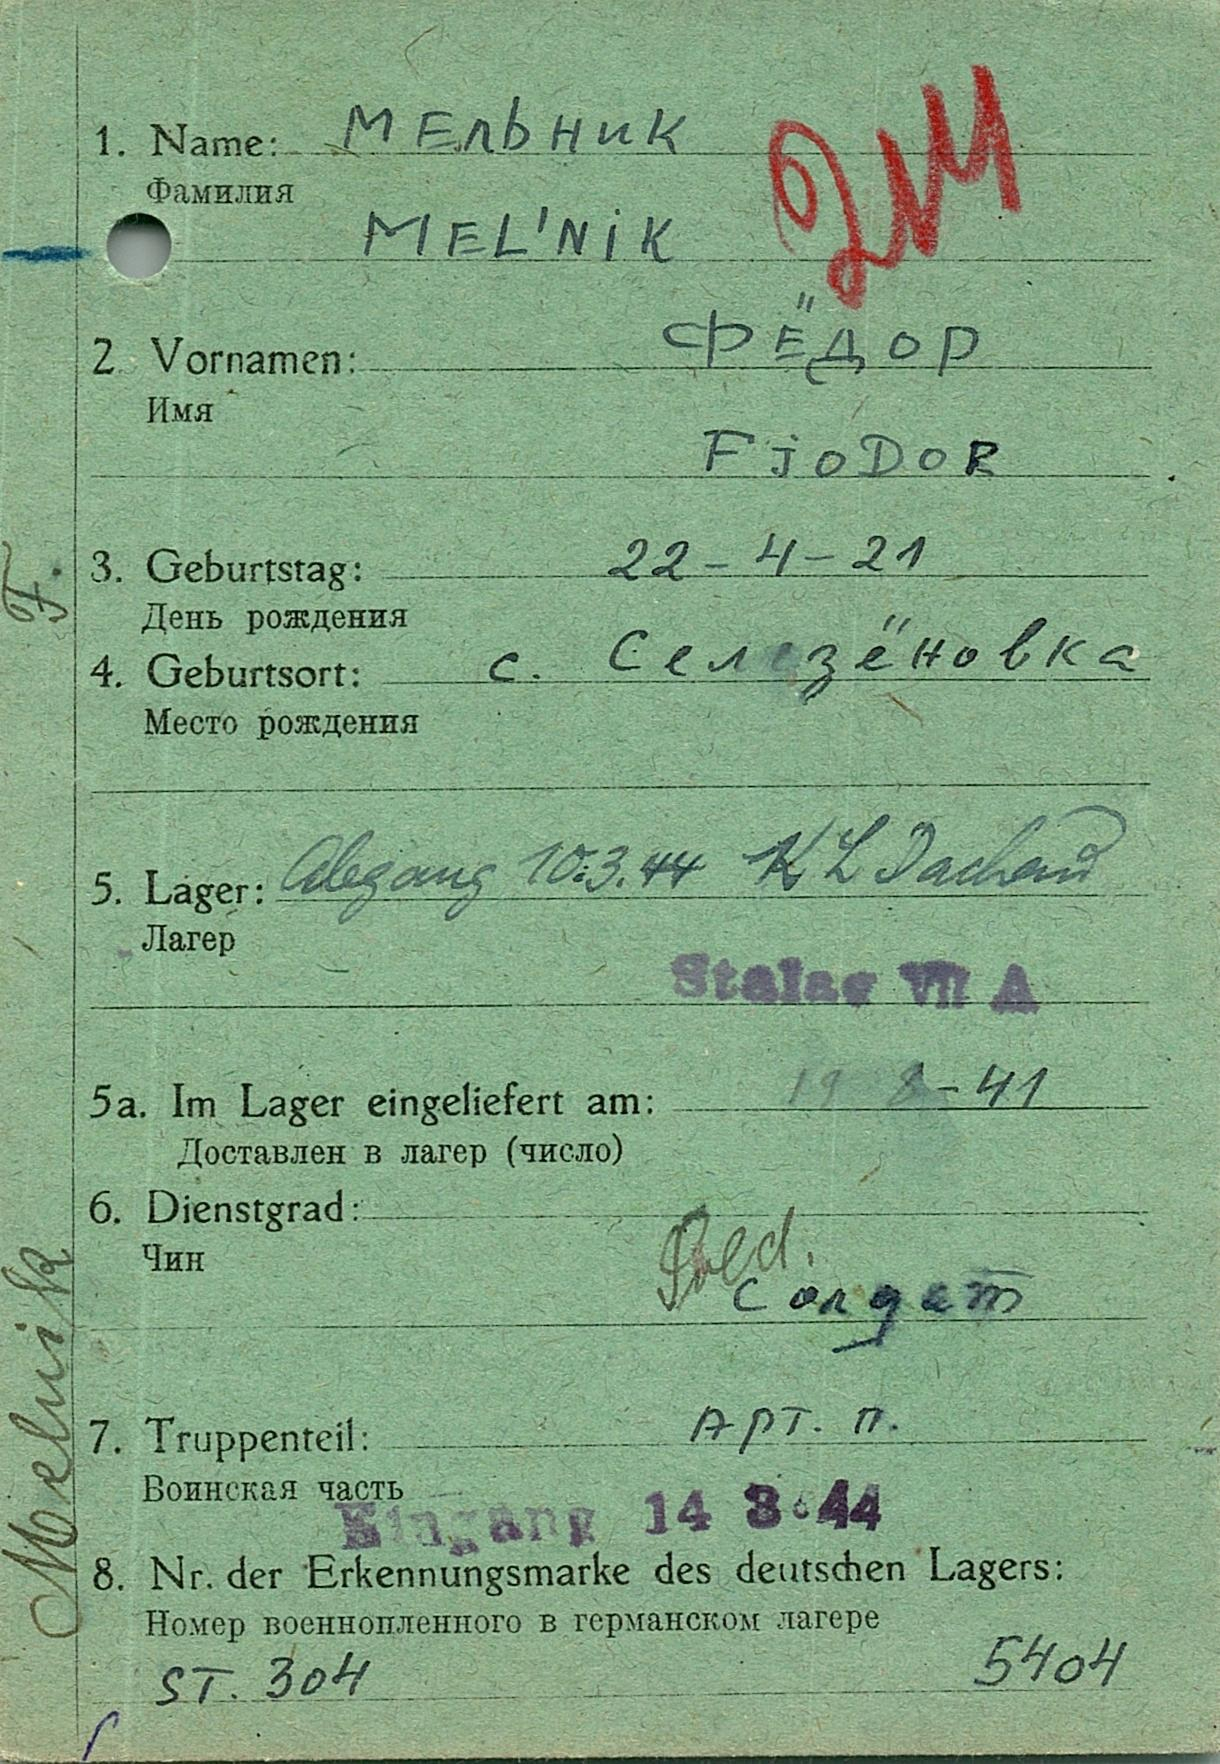 1. Name: Мельник
Фамилия
MEL'NIK
2. Vornamen: Фёдор
Имя
FJODOR
3. Geburtstag: 22-4-21
День рождения
4. Geburtsort: с. Селезёновка
Место рождения
5. Lager: Abgang 10.3.44 KL Dachau
Лагер
Stalag VII A
5a. Im Lager eingeliefert am: 19 8-41
Доставлен в лагер (число)
6. Dienstgrad: Sold.
Чин
Солдат
7. Truppenteil: Арт. п.
Воинская часть
Eingang 14 3.44
8. Nr. der Erkennungsmarke des deutschen Lagers:
Номер военнопленного в германском лагере
ST. 304 5404
Melnik F.